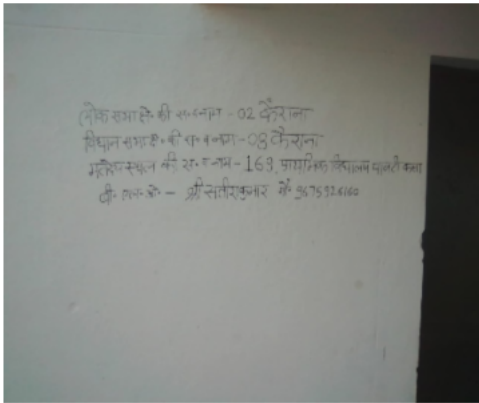 लोक सभा क्षे॰ की स॰ व नाम - 02 कैराना
विधान सभा क्षे॰ की स॰ व नाम - 08 कैराना
मतदेय स्थल की स॰ व नाम - 169, प्राथमिक विद्यालय
बी॰ एल॰ ओ॰ - श्री सतीश कुमार मो॰ 9675926160